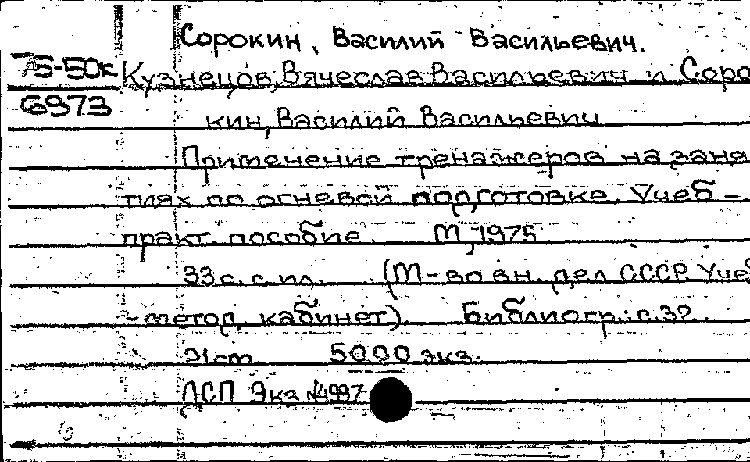 Сорокин, Василий Васильевич.
75-50к Кузнецов, Вячеслав Васильевич и Соро
6973
кин, Василий Васильевич
Применение тренажеров на заня
тиях по огневой подготовке. Учеб-
практ. пособие. М, 1975
33 с. с ил. (М-во вн. дел СССР. Учеб
-метод. кабинет). Библиогр.: с.32.
5000 экз.
ЛСП Экз №4997